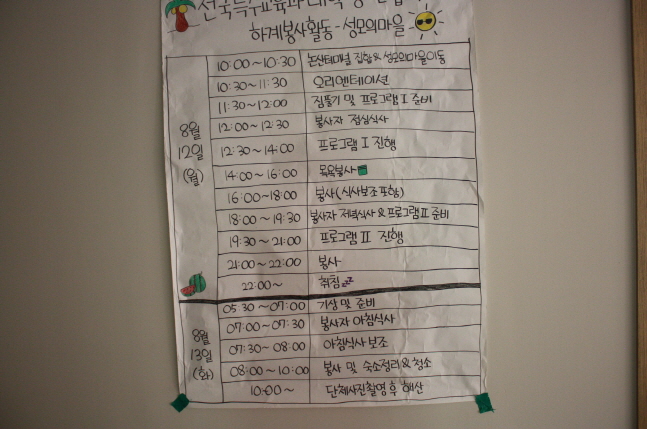 전국특수교육과
하계봉사활동-성모의마을
8월 12일 (월)
10:00~10:30 논산터미널 집합&성모의마을이동
10:30~11:30 오리엔테이션
11:30~12:00 짐풀기 및 프로그램Ⅰ 준비
12:00~12:30 봉사자 점심식사
12:30~14:00 프로그램Ⅰ 진행
14:00~16:00 목욕봉사
16:00~18:00 봉사(식사보조 포함)
18:00~19:30 봉사자 저녁식사&프로그램Ⅱ 준비
19:30~21:00 프로그램Ⅱ 진행
21:00~22:00 봉사
22:00~ 취침zZ
8월 13일 (화)
05:30~07:00 기상 및 준비
07:00~07:30 봉사자 아침식사
07:30~08:00 아침식사 보조
08:00~10:00 봉사 및 숙소정리&청소
10:00~ 단체사진촬영 후 해산